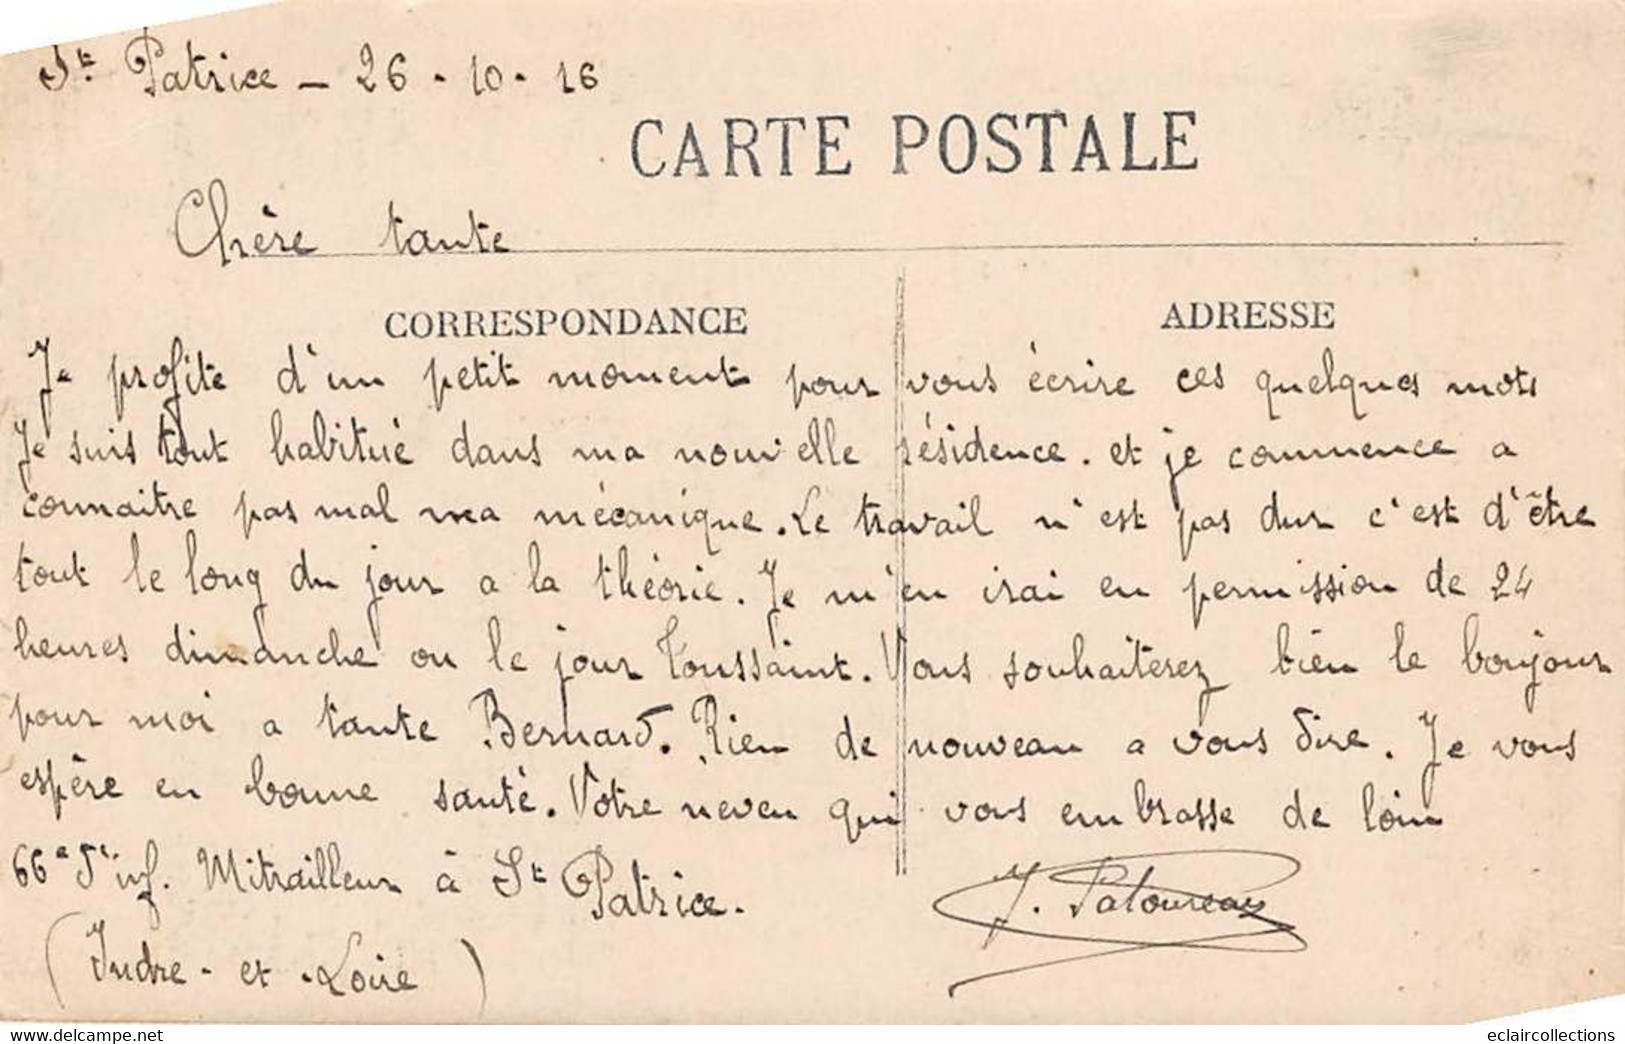 St Patrice - 26 - 10 - 16
CARTE POSTALE
Chère tante
CORRESPONDANCE
ADRESSE
Je profite d'un petit moment pour vous écrire ces quelques mots
Je suis tout habitué dans ma nouvelle résidence. et je commence a
connaitre pas mal ma mécanique. Le travail n'est pas dur c'est d'être
tout le long du jour a la théorie. Je m'en irai en permission de 24
heures dimanche ou le jour Toussaint. Vous souhaiterez bien le bonjour
pour moi a tante Bernard. Rien de nouveau a vous dire. Je vous
espère en bonne santé. Votre neveu qui vous embrasse de loin
66e d'inf. Mitrailleur à St Patrice.
J. Patoureau
(Indre - et - Loire)
www.delcampe.net
eclaircollections